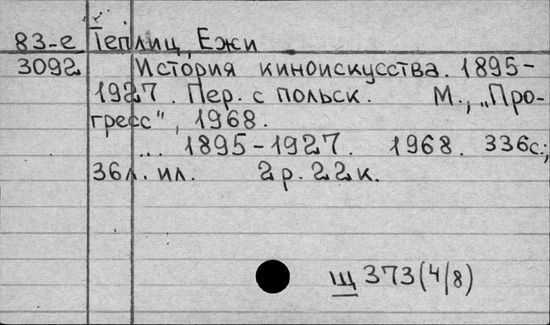 83-е Теплиц, Ежи
3092 История киноискусства. 1895-
1927. Пер. с польск. М., „Про-
гресс", 1968.
... 1895-1927. 1968. 336с.;
36л. ил. 2р. 22к.
Щ373(4/8)